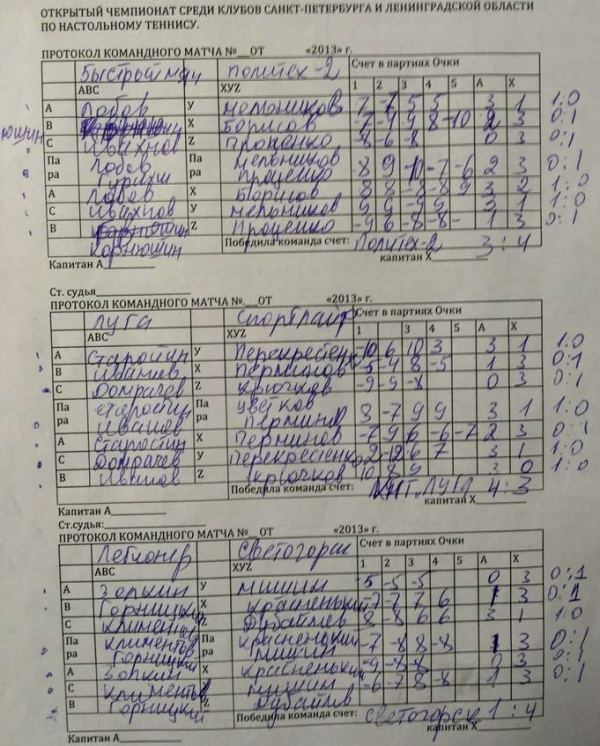 ОТКРЫТЫЙ ЧЕМПИОНАТ СРЕДИ КЛУБОВ САНКТ-ПЕТЕРБУРГА И ЛЕНИНГРАДСКОЙ ОБЛАСТИ
ПО НАСТОЛЬНОМУ ТЕННИСУ.
ПРОТОКОЛ КОМАНДНОГО МАТЧА №__ОТ «2013» г.
ПОЛИТЕХ-2 Счет в партиях Очки
ABC XYZ 1 2 3 4 5 A X
A Лобов У Мельников -7 5 5 3 1 1:0
B X Борисов -7 9 8 -10 2 3 0:1
C Ивахнов Z Проценко -8 -6 -8 0 3 0:1
Па Лобов Па Мельников
ра ра Проценко -8 9 -10 -7 -6 2 3 0:1
A Лобов X Борисов 8 8 -8 -8 9 3 2 1:0
C Ивахнов У Мельников 9 9 -9 9 3 1 1:0
B Z Проценко -9 6 -8 -8 1 3 0:1
Корнюшин Победила команда счет: Политех-2 3:4
Капитан А капитан Х
Ст. судья
ПРОТОКОЛ КОМАНДНОГО МАТЧА №__ОТ «2013» г.
ЛУГА Спортлайф Счет в партиях Очки
ABC XYZ 1 2 3 4 5 A X
A Старостин У -10 6 10 3 3 1 1:0
B Иванов X Перминов -5 -4 8 -5 1 3 0:1
C Домрачев Z Крючков -9 -9 -8 0 3 0:1
Па Старостин Па Цветков
ра Иванов ра 8 -7 9 9 3 1 1:0
A Старостин X Перминов -7 9 6 -6 -7 2 3 0:1
C Домрачев У 6 7 3 1 1:0
B Иванов Z Крючков 10 8 9 3 0 1:0
Победила команда счет: ЛУГА 4:3
Капитан А капитан Х
Ст.судья:
ПРОТОКОЛ КОМАНДНОГО МАТЧА №__ОТ «2013» г.
Легионер Светогорск Счет в партиях Очки
ABC XYZ 1 2 3 4 5 A X
A Зоркин У Мишин -5 -5 -5 0 3 0:1
B Горницкий X Красненький 1 3 0:1
C Климентов Z Дубайлов 8 -8 6 6 3 1 1:0
Па Климентов Па Красненький
ра Горницкий ра Мишин -7 -8 8 -8 1 3 0:1
A Зоркин X Красненький -9 -8 -8 0 3 0:1
C Климентов У Мишин -6 -7 8 -8 1 3 0:1
B Горницкий Z Дубайлов
Победила команда счет: Светогорск 1:4
Капитан А капитан Х